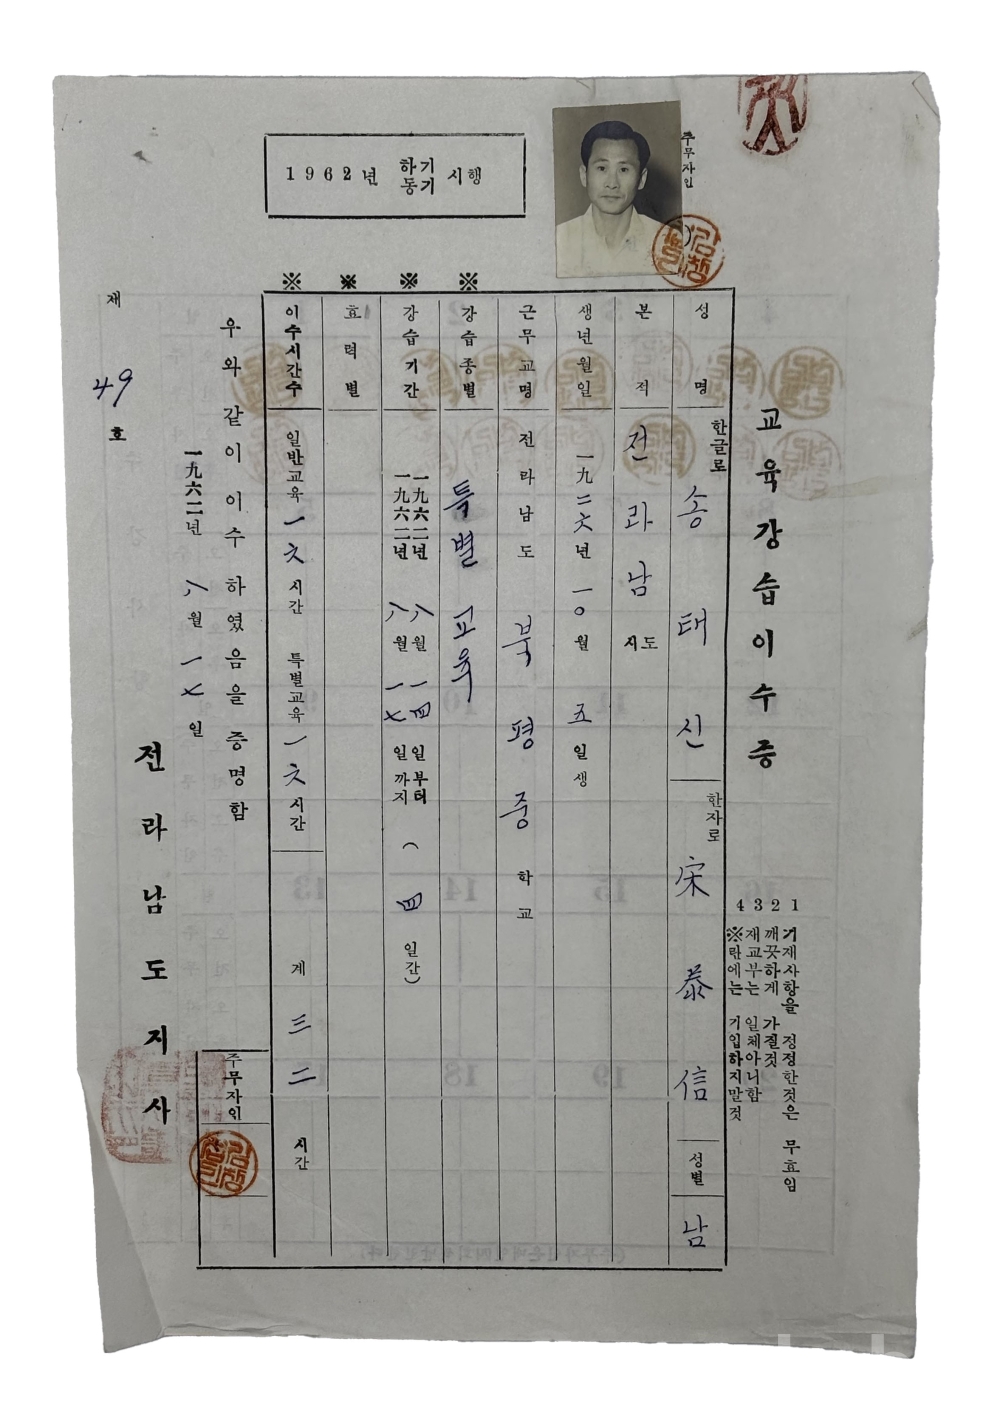 1962년 하기 동기 시행
주무자인
교육강습이수증
1 기재사항을 정정한것은 무효임
2 깨끗하게 가질것
3 재교부는 일체아니함
4 ※란에는 기입하지말것
성명 한글로 송태신 한자로 宋泰信 성별 남
본적 전라남 시도
생년월일 一九二六年 一○월 五일생
근무교명 전라남도 북평중 학교
※ 강습종별 특별교육
※ 강습기간 一九六二년 八월 一四일부터
一九六二년 八월 一七일까지 (四일간)
※ 효력별
※ 이수시간수 일반교육 一六시간 특별교육 一六시간 계 三二시간
우와같이 이수하였음을 증명함
一九六二년 八월 一七일
주무자인
전라남도지사
제 49 호